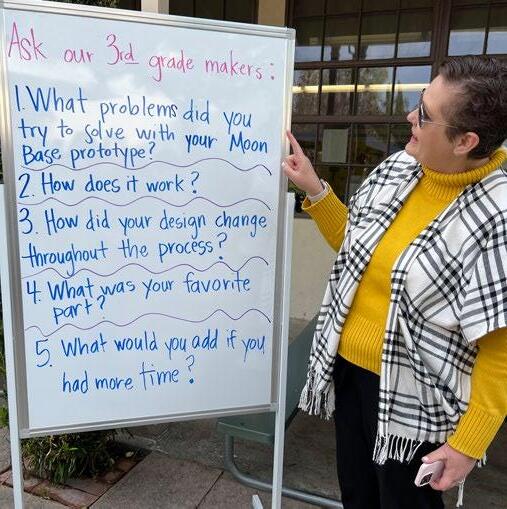 Ask our 3rd grade makers:
1. What problems did you
try to solve with your Moon
Base prototype?
2. How does it work?
3. How did your design change
throughout the process?
4. What was your favorite
part?
5. What would you add if you
had more time?